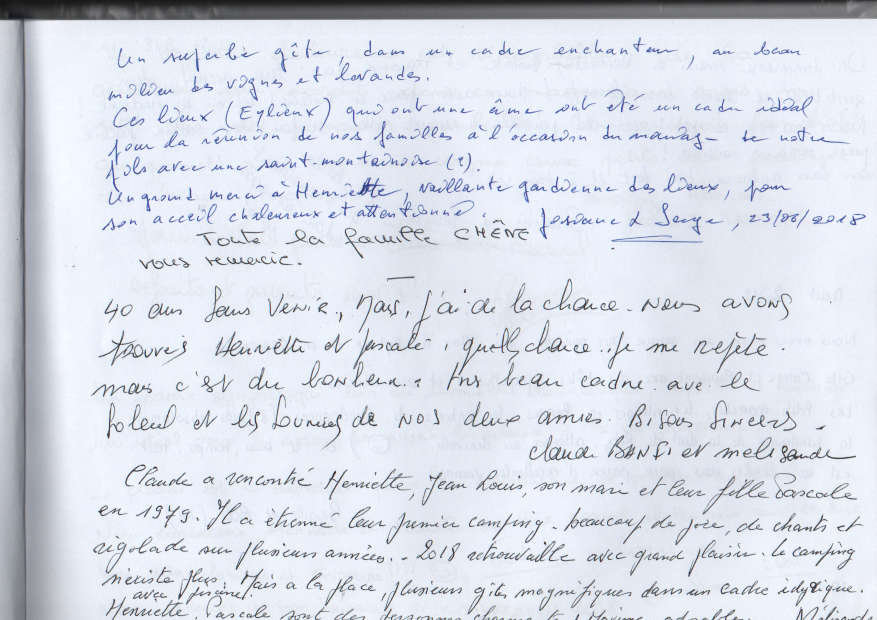 Un superbe gîte, dans un cadre enchanteur, au beau
milieu des vignes et lavandes.
Ces lieux (Eglieux) qui ont une âme ont été un cadre idéal
pour la réunion de nos familles à l'occasion du mariage de notre
fils avec une saint-montanoise (?)
Un grand merci à Henriette, vaillante gardienne des lieux, pour
son acceil chaleureux et attentionné. Josiane & Serge, 23/06/2018
Toute la famille CHÊNE
vous remercie.
40 ans sans venir., Mais, j'ai de la chance. Nous avons
trouvés Henriette et pascale. quelle chance.. Je me repete.
mais c'est du bonheur.. très beau cadre. avec le
soleil et les sourires de nos deux amies. Bisous sincers.
claude et melisande
Claude a rencontré Henriette, Jean Louis, son mari et leur fille Pascale
en 1979. Il a étrenné leur premier camping. beaucoup de joie, de chants et
rigolade sur plusieurs années.. 2018 retrouvaille avec grand plaisir. le camping
n'existe plus. Mais a la place, plusieurs gîtes magnifiques dans un cadre idyllique.
avec piscine
Henriette, Pascale sont des personnes adorables. Mélisande